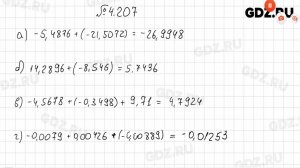 №4.207
GDZ.RU
а) -5,4876 + (-21,5072) = -26,9948
б) 14,2896 + (-8,546) = 5,7436
в) -4,5678 + (-0,3498) + 9,71 = 4,7924
г) -0,0079 + 0,00426 + (-0,00889) = -0,01253
GDZ.RU